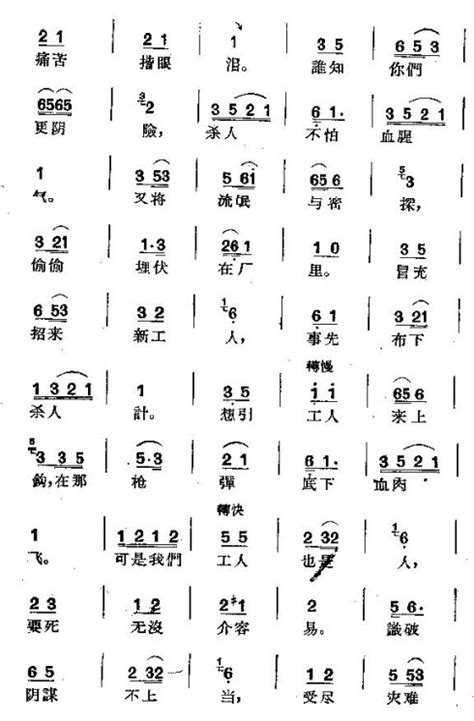 2 1 | 2 1 | 1 | 3 5 | 6 5 3
痛苦 揩眼 泪。 誰知 你們
6565 | 3 2 | 3 5 2 1 | 6 1· | 3 5 2 1
更阴 險, 杀人 不怕 血腥
1 | 3 53 | 5 61 | 65 6 | 5 3
气。 又将 流氓 与密 探,
3 21 | 1·3 | 26 1 | 1 0 | 3 5
偷偷 埋伏 在厂 里。 冒充
6 53 | 3 2 | 1 6 | 6 1 | 3 21
招来 新工 人, 事先 布下
轉慢
1 3 2 1 | 1 | 3 5 | 1 1 | 65 6
杀人 計。 想引 工人 来上
5 3 3 5 | 5·3 | 2 1 | 6 1· | 3 5 2 1
鈎,在那 枪 彈 底下 血肉
轉快
1 | 1 2 1 2 | 5 5 | 2 32 | 1 6
飞。 可是我們 工人 也是 人,
2 3 | 1 2 | 2 1 | 2 | 5 6·
要死 无沒 介容 易。 識破
6 5 | 2 32 | 1 6 | 1 2 | 5 53
阴謀 不上 当, 受尽 灾难